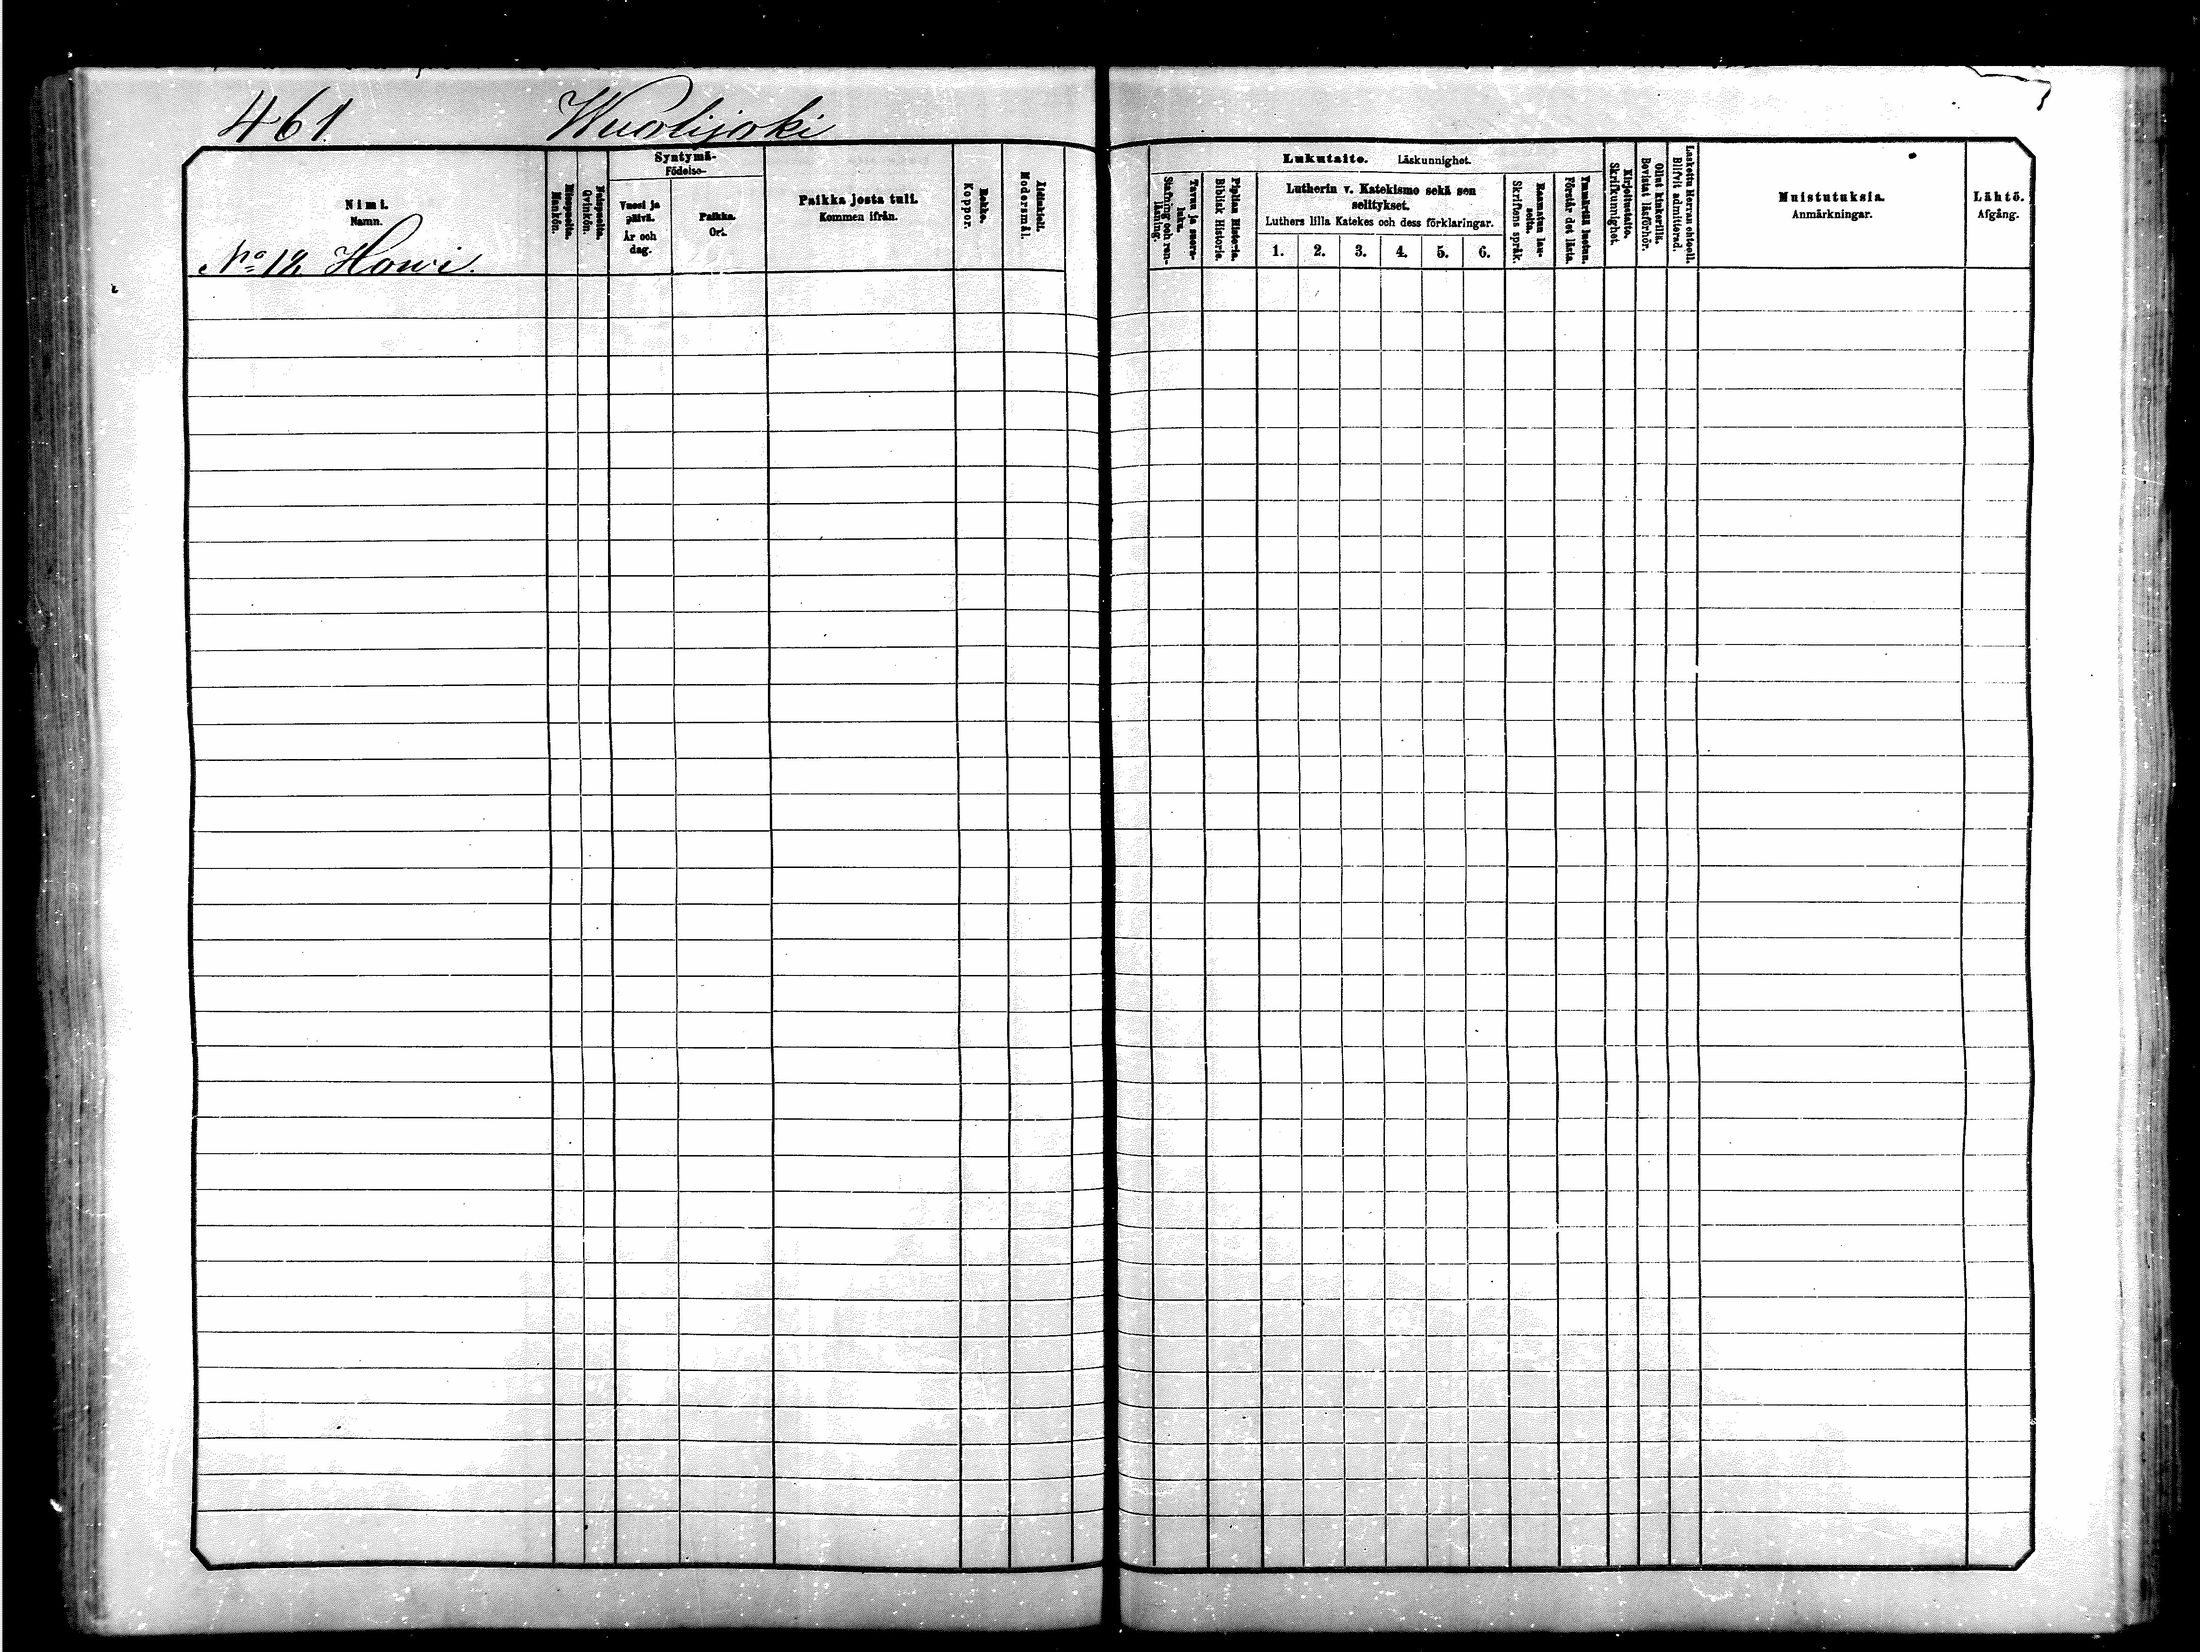 461. Wuorlijoki
Nimi.
Namn.
No 12 Howi.
Miespuolia.
Mankön.
Naispuolia.
Qvinkön.
Syntymä-
Födelse-
Vuosi ja
päivä.
År och
dag.
Paikka.
Ort.
Paikka josta tuli.
Kommen ifrån.
Rokko.
Koppor.
Äidinkieli.
Modersmål.
Lukutaito. Läskunnighet.
Tavuu ja suora-
luku.
Stafning och ren-
läsning.
Piplian Historia.
Biblisk Historia.
Lutherin v. Katekismo sekä sen
selitykset.
Luthers lilla Katekes och dess förklaringar.
1. 2. 3. 4. 5. 6.
Raamatun lau-
seita.
Skriftens språk.
Ymmärtää luetun.
Förstår det lästa.
Kirjoitustaito.
Skrifkunnighet.
Ollut kinkerillä.
Bevistat läsförhör.
Laskettu Herran ehtooll.
Blifvit admitterad.
Muistutuksia.
Anmärkningar.
Lähtö.
Afgång.